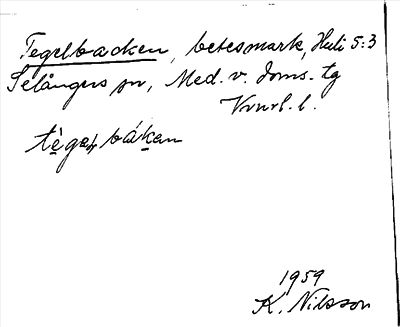 Tegelbacken, betesmark, Huli 5:3
Selångers sn, Med. v. doms. tg
Vnrl. l.
tège₄báken
1959
K. Nilsson